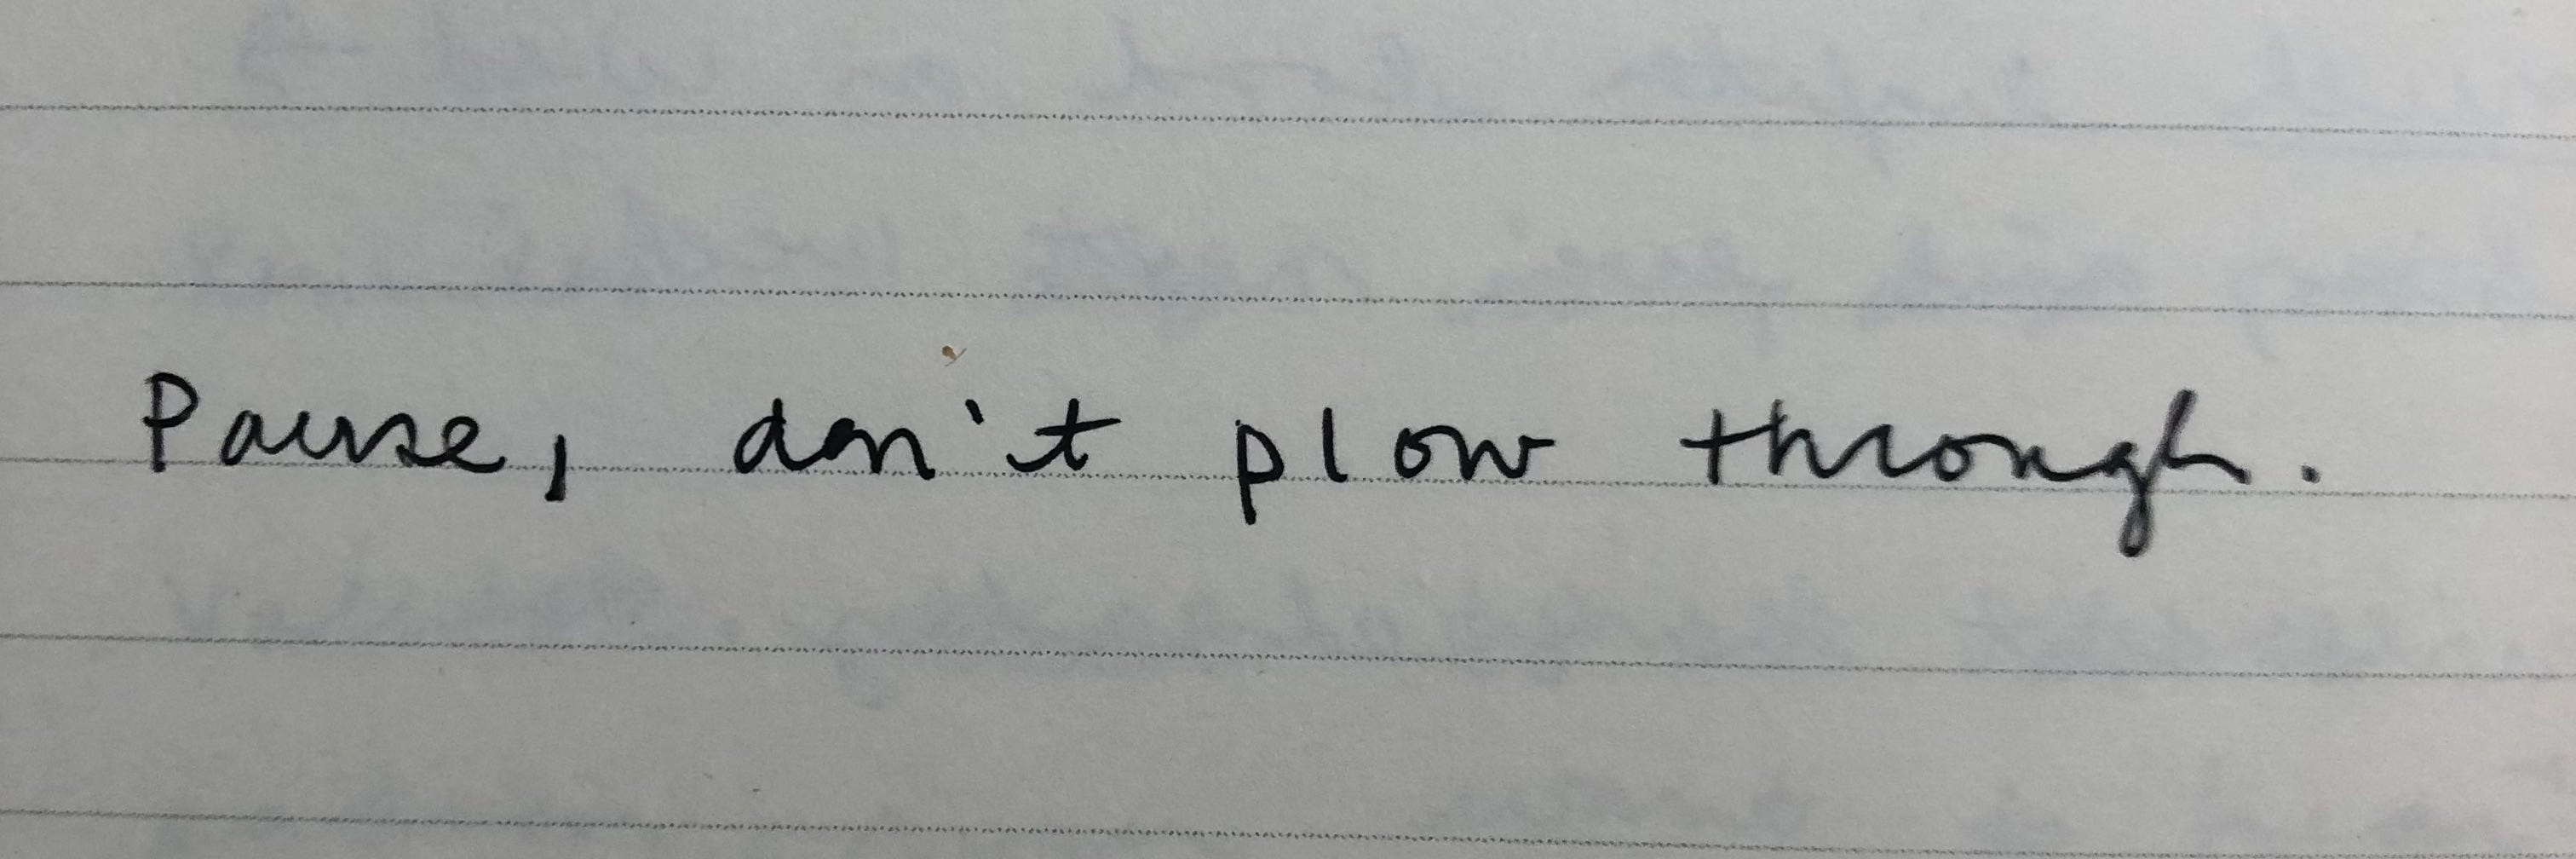 Pause, don't plow through.